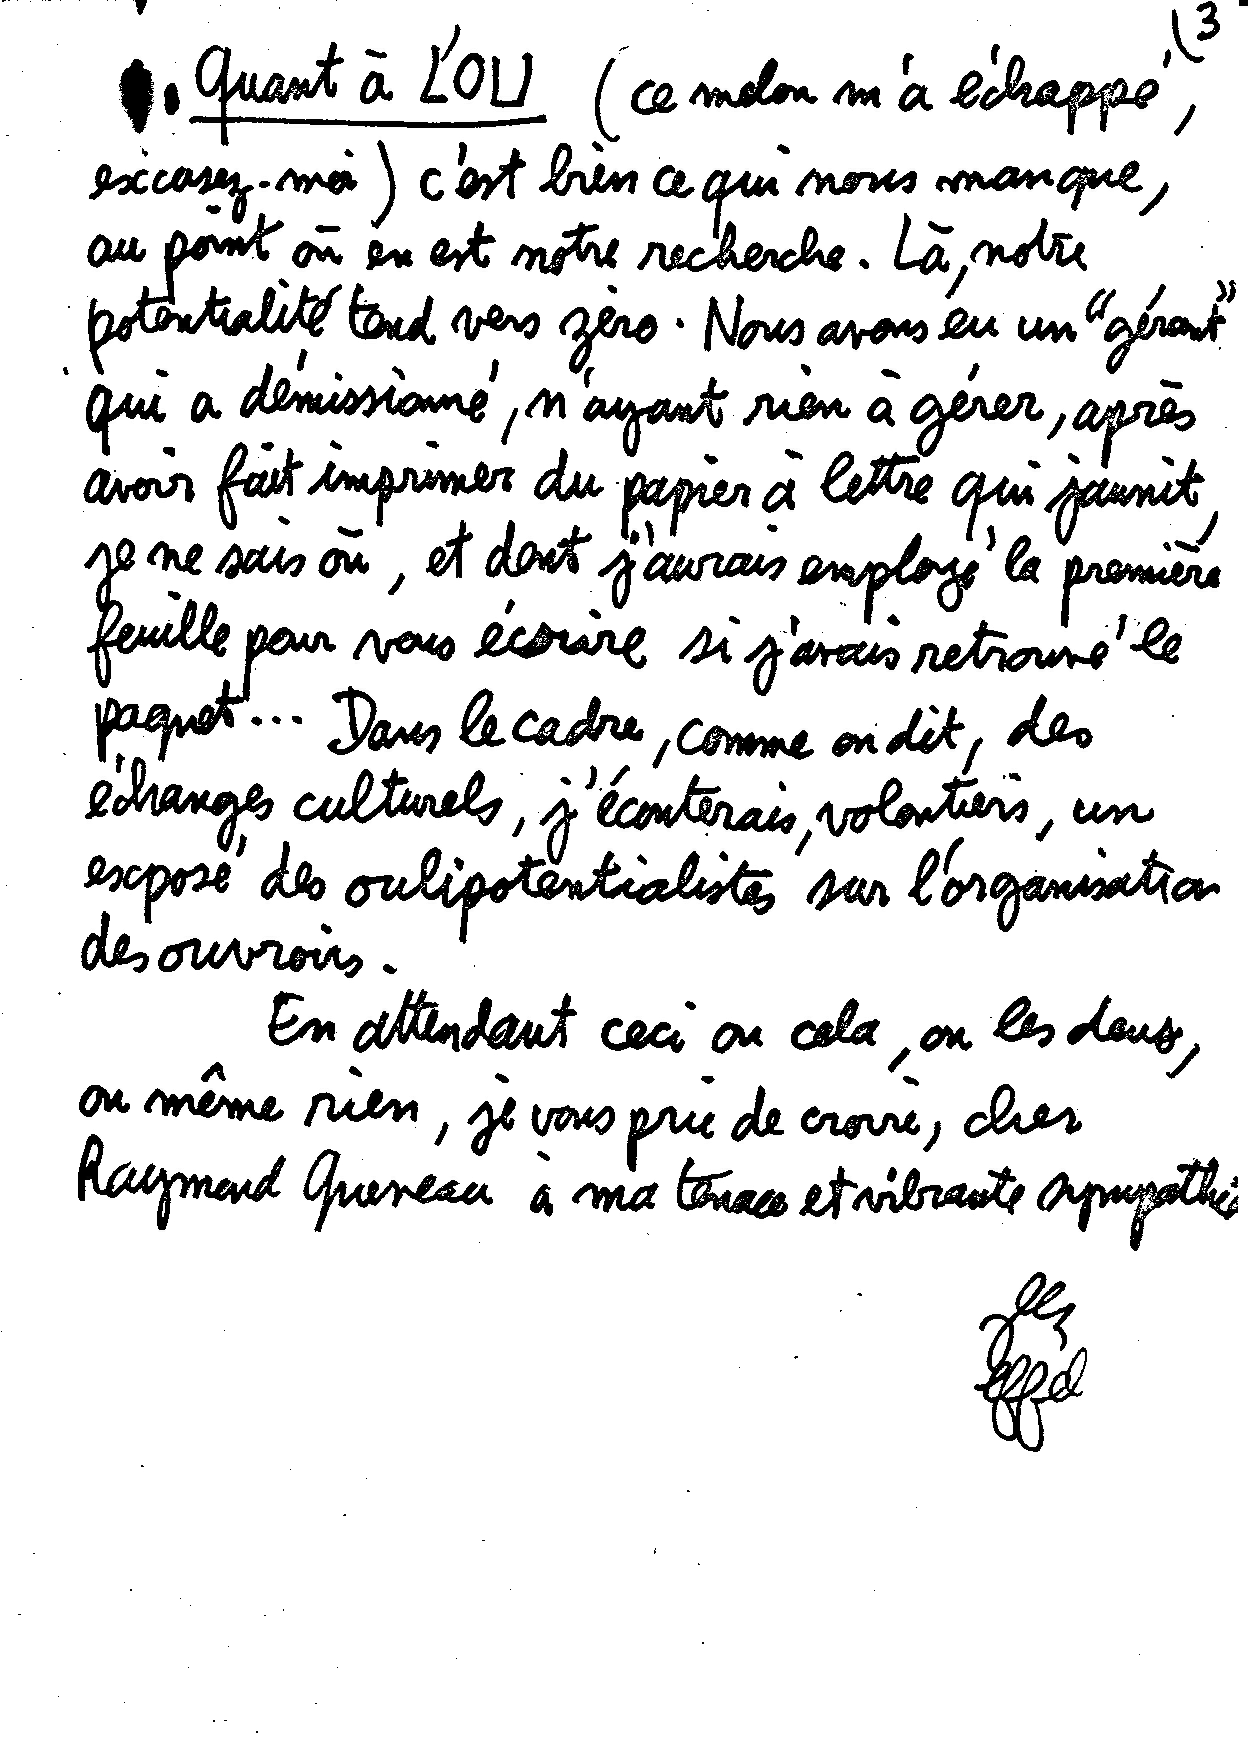 (3
. Quant à L'OU (ce melon m'a échappé,
excusez-moi) c'est bien ce qui nous manque,
au point où en est notre recherche. Là, notre
potentialité tend vers zéro. Nous avons eu un "gérant"
qui a démissionné, n'ayant rien à gérer, après
avoir fait imprimer du papier à lettre qui jaunit,
je ne sais où, et dont j'aurais employé la première
feuille pour vous écrire si j'avais retrouvé le
paquet... Dans le cadre, comme on dit, des
échanges culturels, j'écouterais, volontiers, un
exposé des oulipotentialistes sur l'organisation
des ouvroirs.
En attendant ceci ou cela, ou les deux,
ou même rien, je vous prie de croire, cher
Raymond Queneau à ma tenace et vibrante sympathie